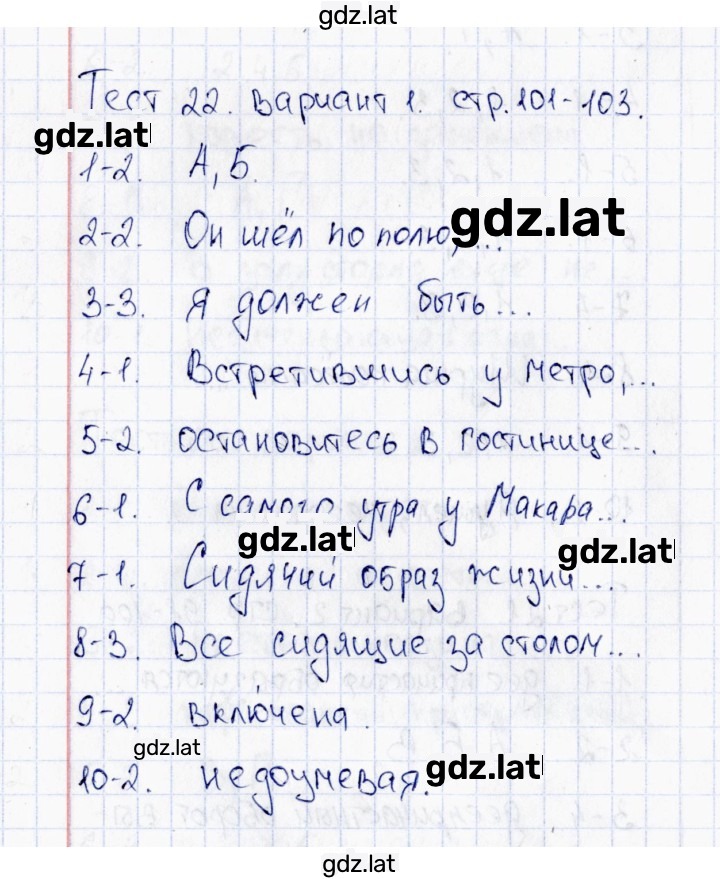 gdz.lat
Тест 22. Вариант 1. стр. 101-103.
gdz.lat
1-2. А, Б.
gdz.lat
2-2. Он шёл по полю,...
3-3. Я должен быть...
4-1. Встретившись у метро,...
5-2. остановитесь в гостинице...
6-1. С самого утра у Макара...
gdz.lat
gdz.lat
7-1. Сидячий образ жизни...
8-3. Все сидящие за столом...
9-2. включена.
gdz.lat
10-2. недоумевая.
gdz.lat
gdz.lat